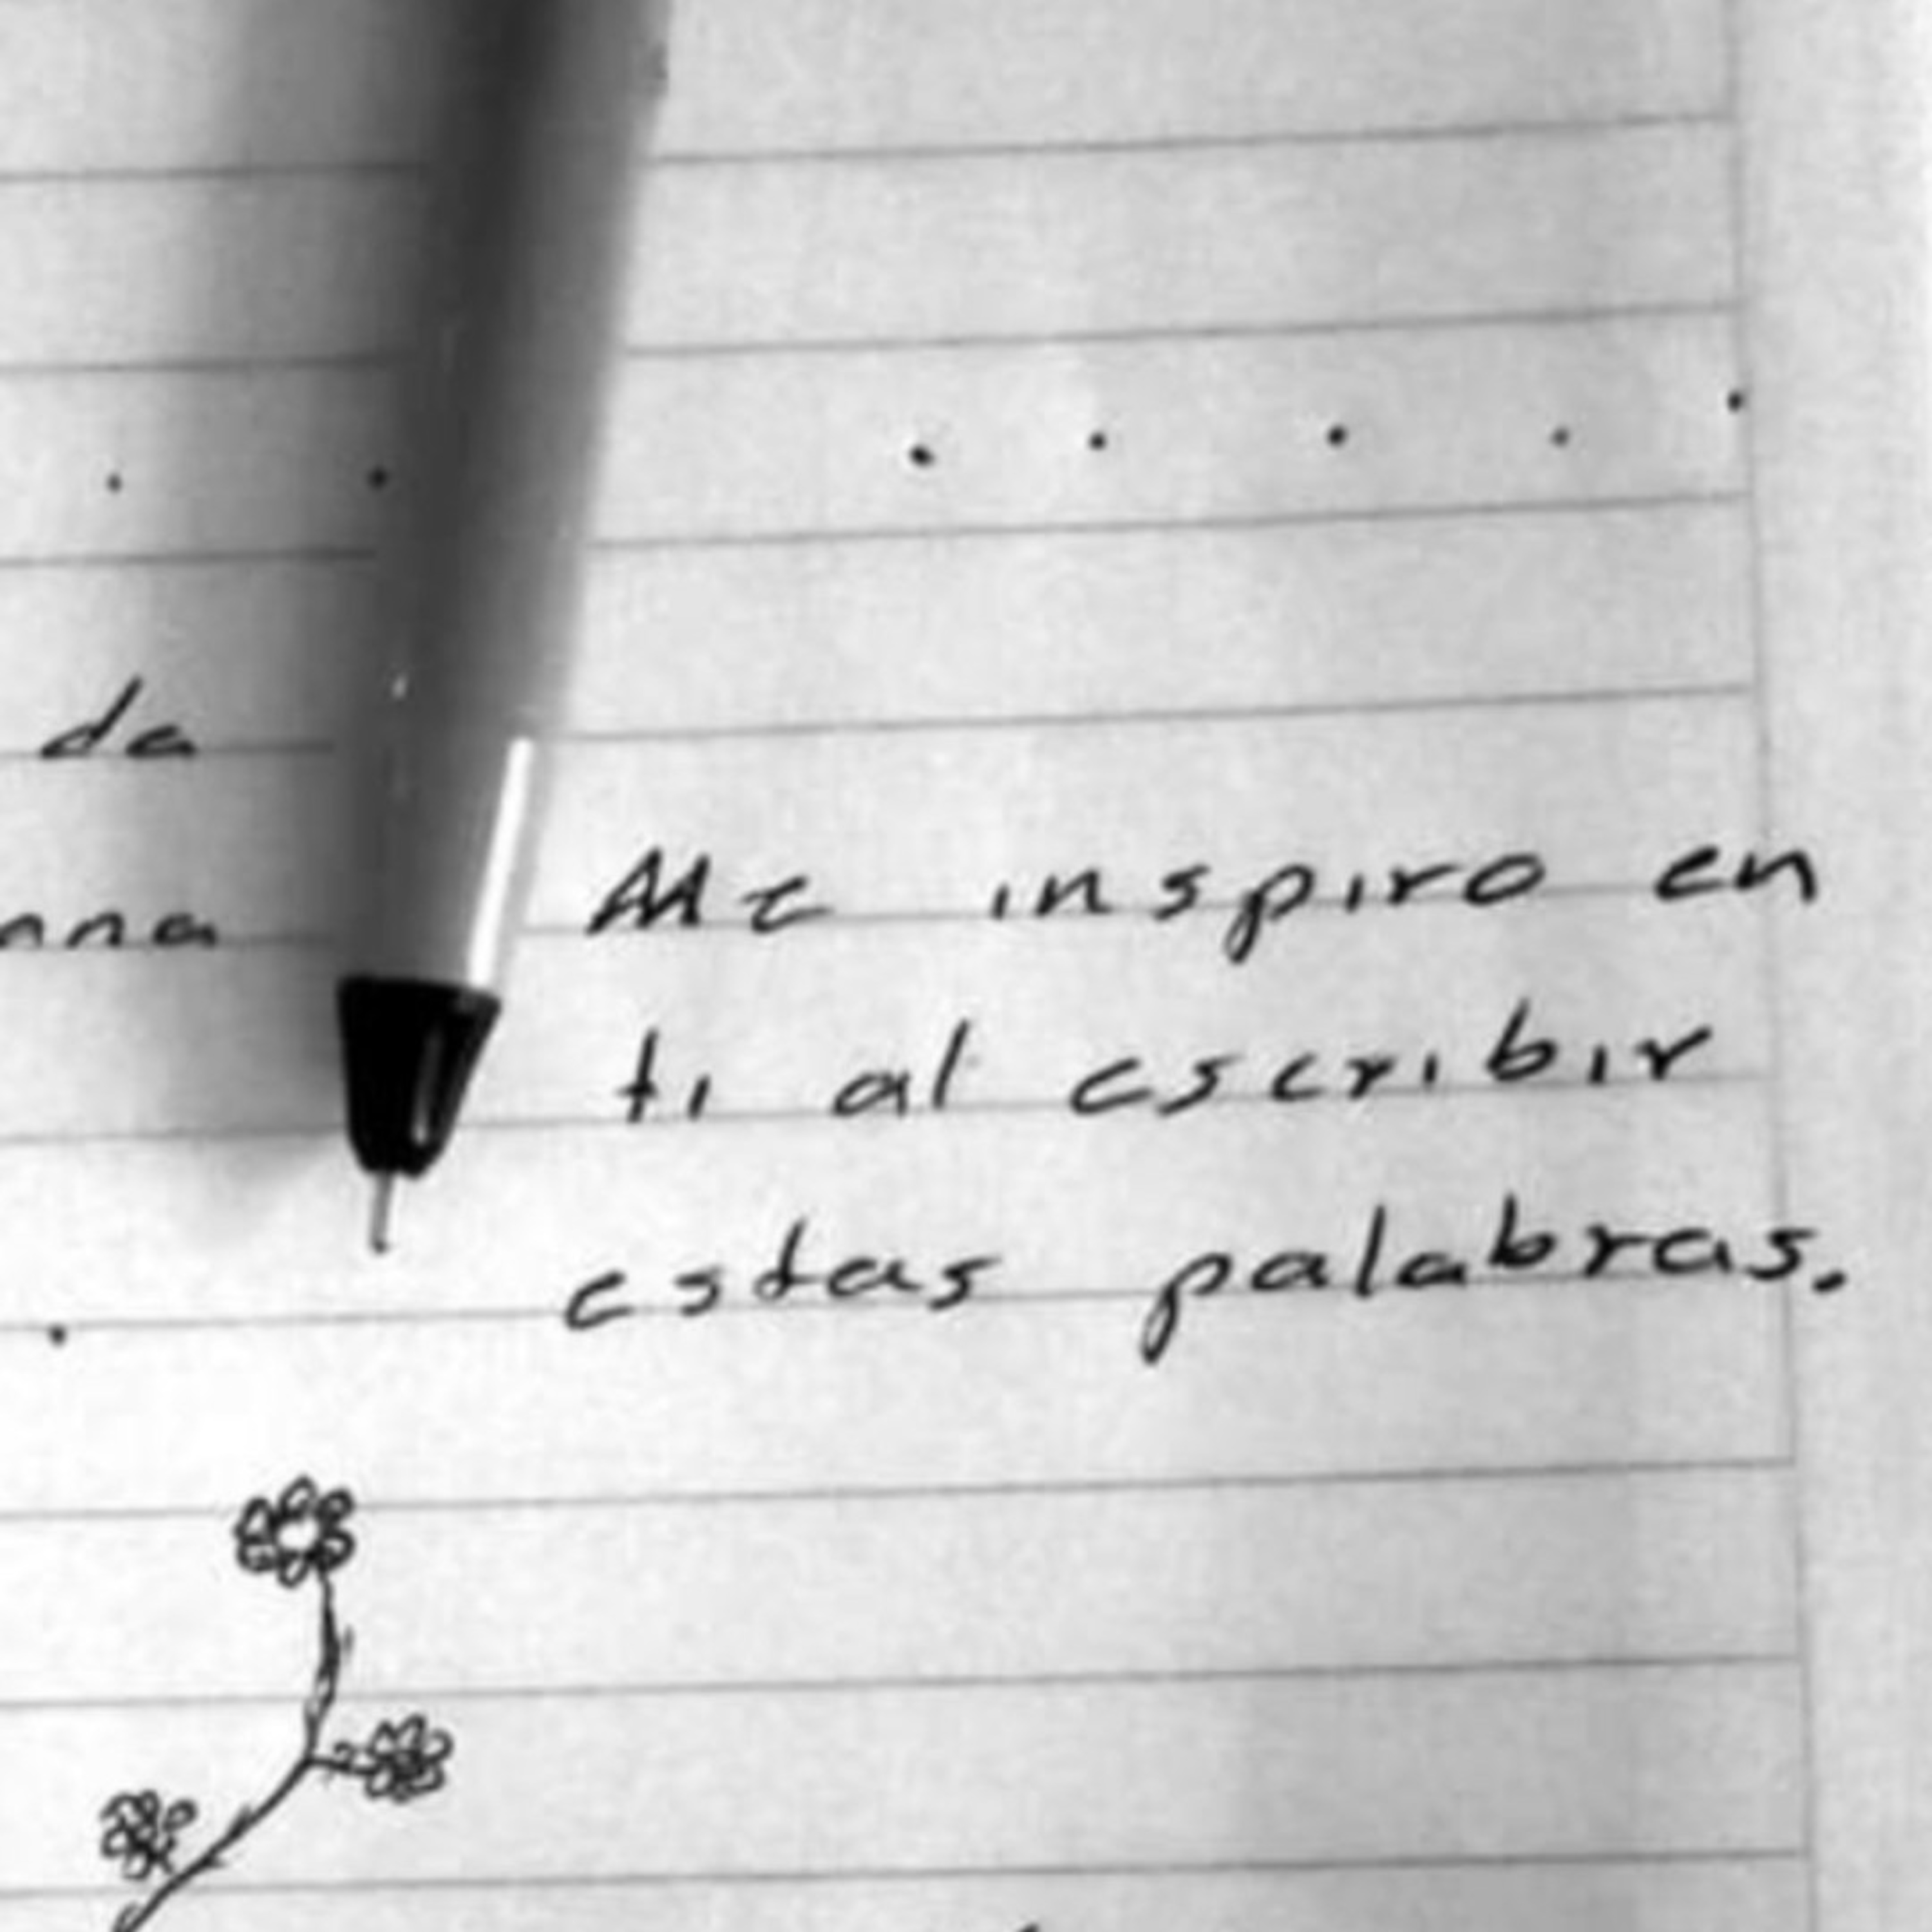 da
Me inspiro en
ti al escribir
estas palabras.